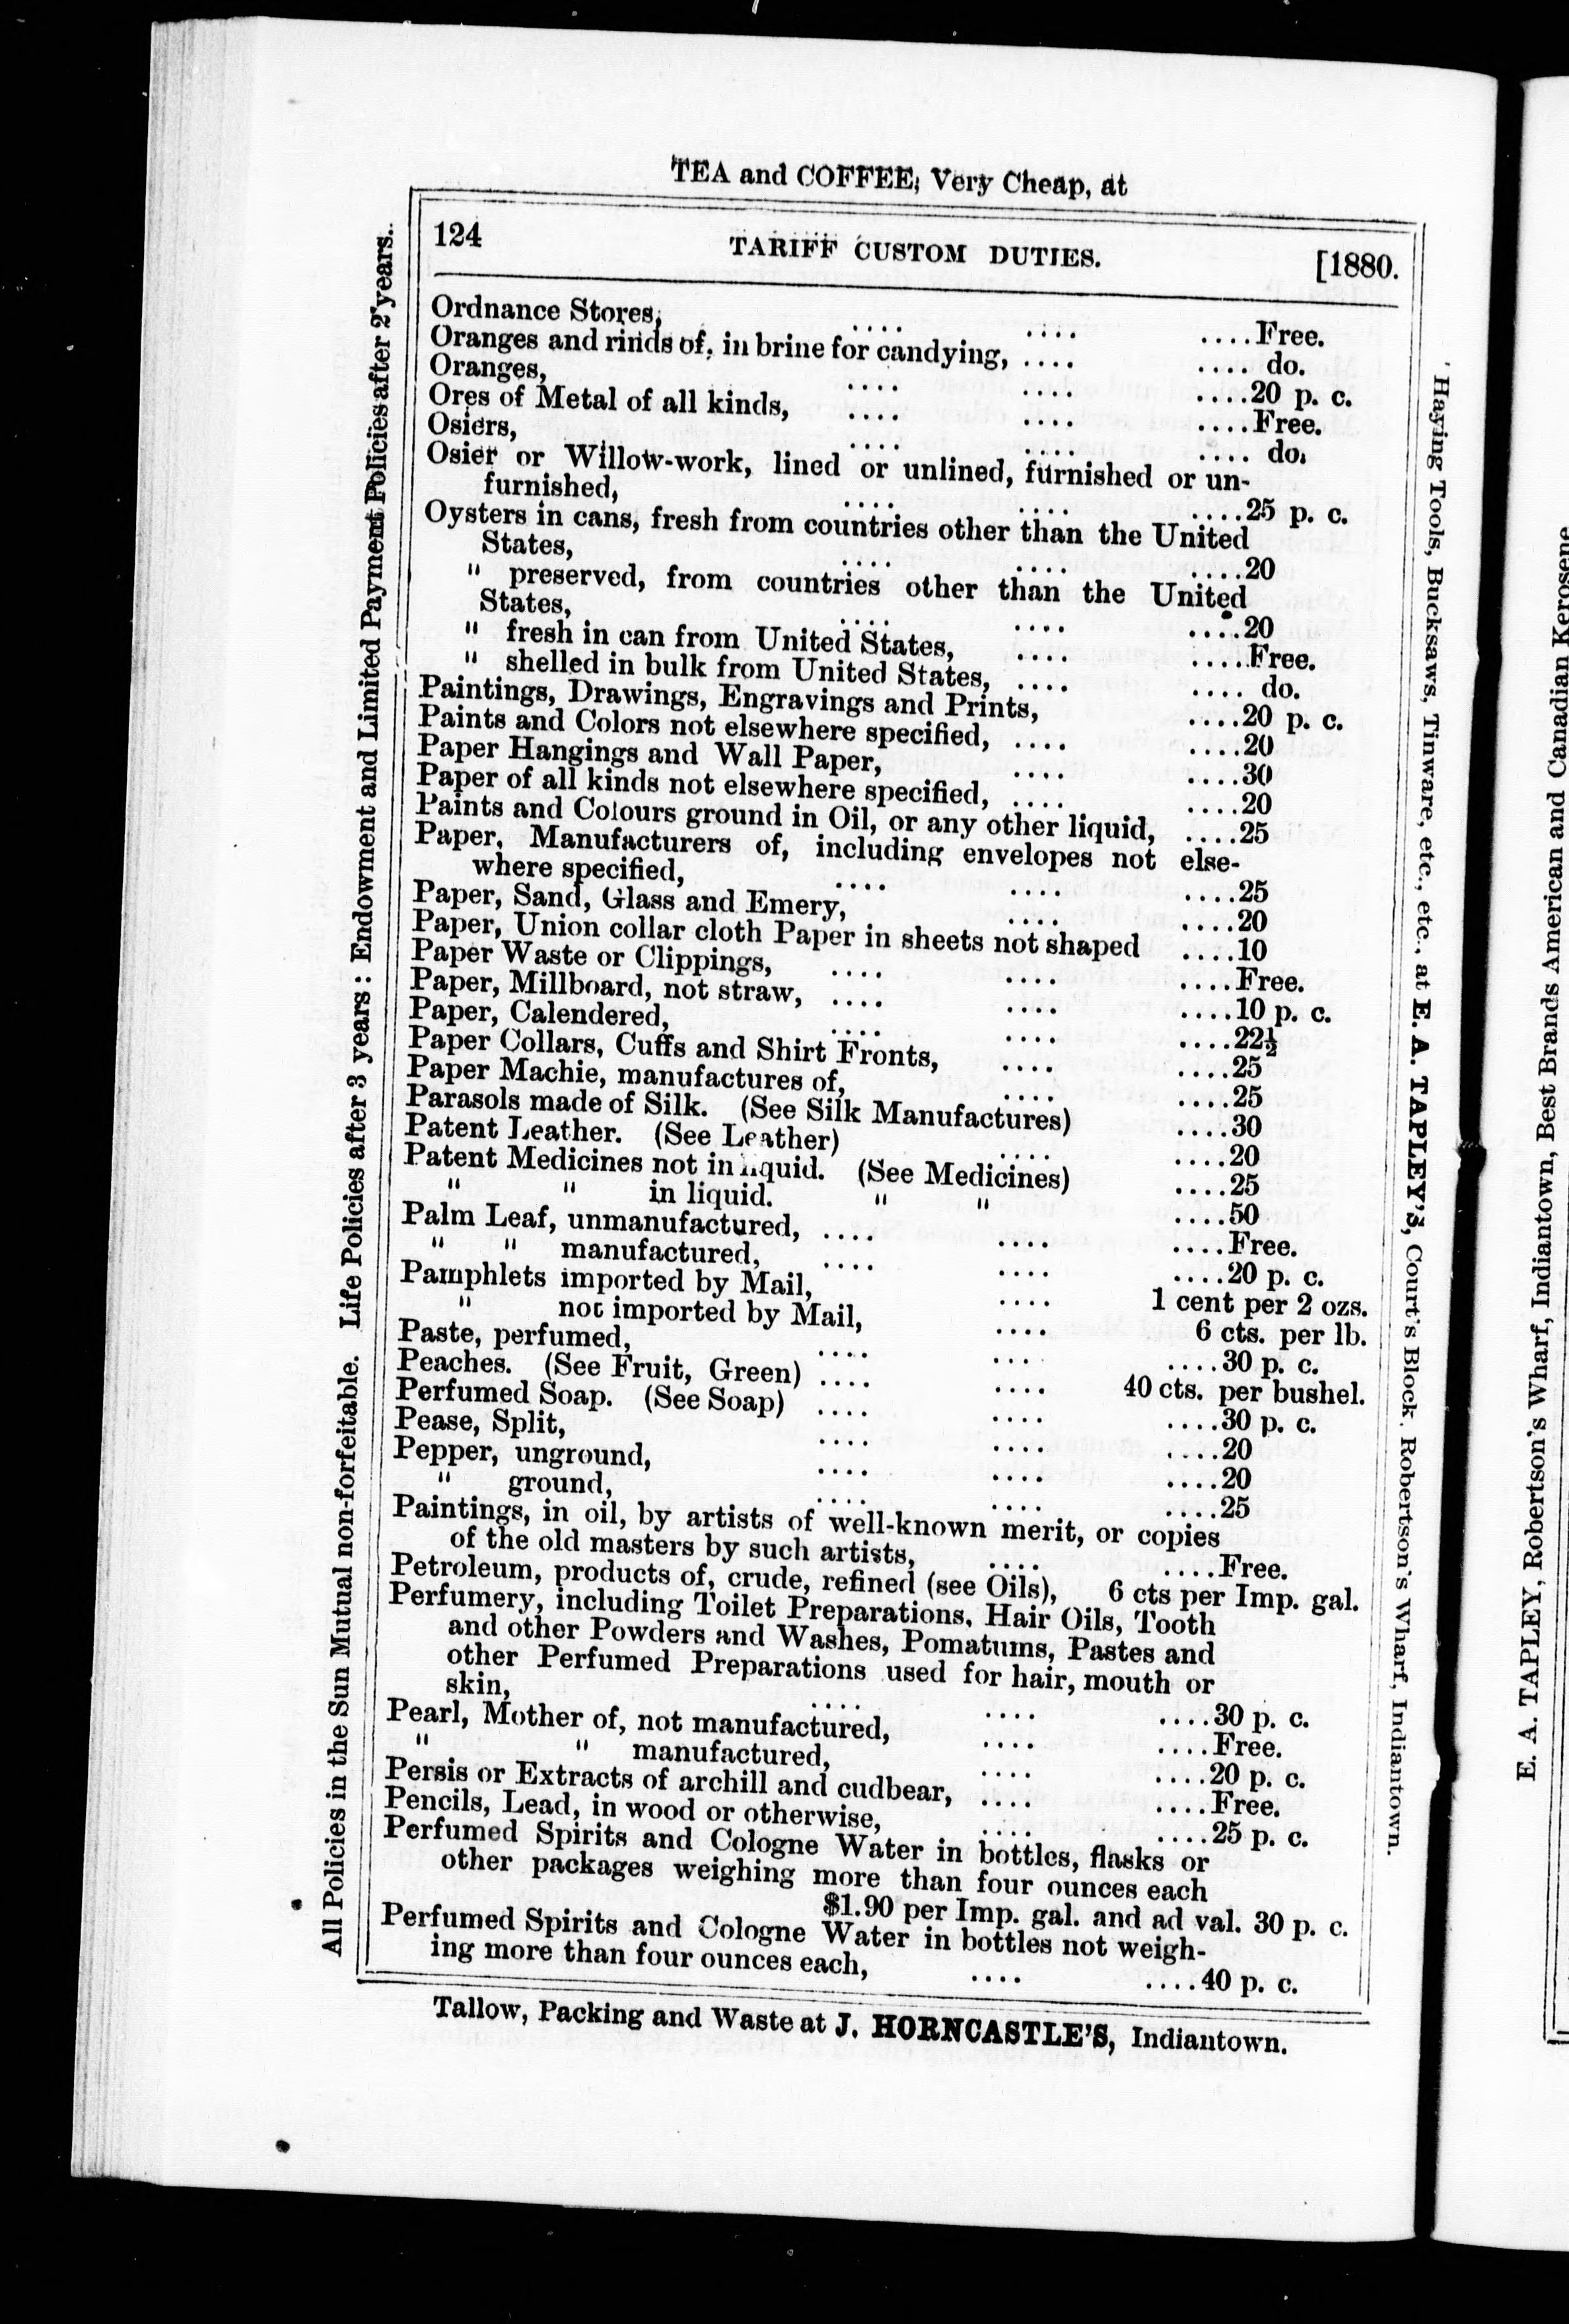 TEA and COFFEE, Very Cheap, at
124 TARIFF CUSTOM DUTIES. [1880.
Ordnance Stores, .... .... ....Free.
Oranges and rinds of, in brine for candying, .... .... do.
Oranges, .... .... ....20 p. c.
Ores of Metal of all kinds, .... .... ....Free.
Osiers, .... .... .... do.
Osier or Willow-work, lined or unlined, furnished or un-
furnished, .... .... ....25 p. c.
Oysters in cans, fresh from countries other than the United
States, .... .... ....20
" preserved, from countries other than the United
States, .... .... ....20
" fresh in can from United States, .... ....Free.
" shelled in bulk from United States, .... .... do.
Paintings, Drawings, Engravings and Prints, ....20 p. c.
Paints and Colors not elsewhere specified, .... ....20
Paper Hangings and Wall Paper, .... ....30
Paper of all kinds not elsewhere specified, .... ....20
Paints and Colours ground in Oil, or any other liquid, ....25
Paper, Manufacturers of, including envelopes not else-
where specified, .... .... ....25
Paper, Sand, Glass and Emery, .... ....20
Paper, Union collar cloth Paper in sheets not shaped ....10
Paper Waste or Clippings, .... .... ....Free.
Paper, Millboard, not straw, .... .... ....10 p. c.
Paper, Calendered, .... .... ....22½
Paper Collars, Cuffs and Shirt Fronts, .... ....25
Paper Machie, manufactures of, .... ....25
Parasols made of Silk. (See Silk Manufactures) ....30
Patent Leather. (See Leather) .... ....20
Patent Medicines not in liquid. (See Medicines) ....25
" " in liquid. " " ....50
Palm Leaf, unmanufactured, .... .... ....Free.
" " manufactured, .... .... ....20 p. c.
Pamphlets imported by Mail, .... 1 cent per 2 ozs.
" not imported by Mail, .... 6 cts. per lb.
Paste, perfumed, .... .... ....30 p. c.
Peaches. (See Fruit, Green) .... .... 40 cts. per bushel.
Perfumed Soap. (See Soap) .... .... ....30 p. c.
Pease, Split, .... .... ....20
Pepper, unground, .... .... ....20
" ground, .... .... ....25
Paintings, in oil, by artists of well-known merit, or copies
of the old masters by such artists, .... ....Free.
Petroleum, products of, crude, refined (see Oils), 6 cts per Imp. gal.
Perfumery, including Toilet Preparations, Hair Oils, Tooth
and other Powders and Washes, Pomatums, Pastes and
other Perfumed Preparations used for hair, mouth or
skin, .... .... ....30 p. c.
Pearl, Mother of, not manufactured, .... ....Free.
" " manufactured, .... ....20 p. c.
Persis or Extracts of archill and cudbear, .... ....Free.
Pencils, Lead, in wood or otherwise, .... ....25 p. c.
Perfumed Spirits and Cologne Water in bottles, flasks or
other packages weighing more than four ounces each
$1.90 per Imp. gal. and ad val. 30 p. c.
Perfumed Spirits and Cologne Water in bottles not weigh-
ing more than four ounces each, .... ....40 p. c.
Tallow, Packing and Waste at J. HORNCASTLE'S, Indiantown.
All Policies in the Sun Mutual non-forfeitable. Life Policies after 3 years: Endowment and Limited Payment Policies after 2 years.
Haying Tools, Bucksaws, Tinware, etc., etc., at E. A. TAPLEY'S, Court's Block, Robertson's Wharf, Indiantown.
E. A. TAPLEY, Robertson's Wharf, Indiantown, Best Brands American and Canadian Kerosene